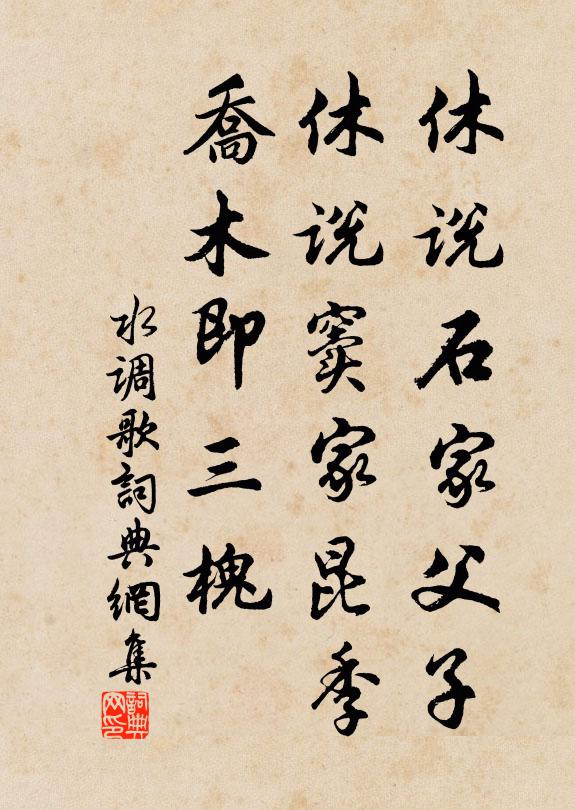 休说石家父子
休说窦家昆季
喬木即三槐
水调歌詞典網集
詞典
网印